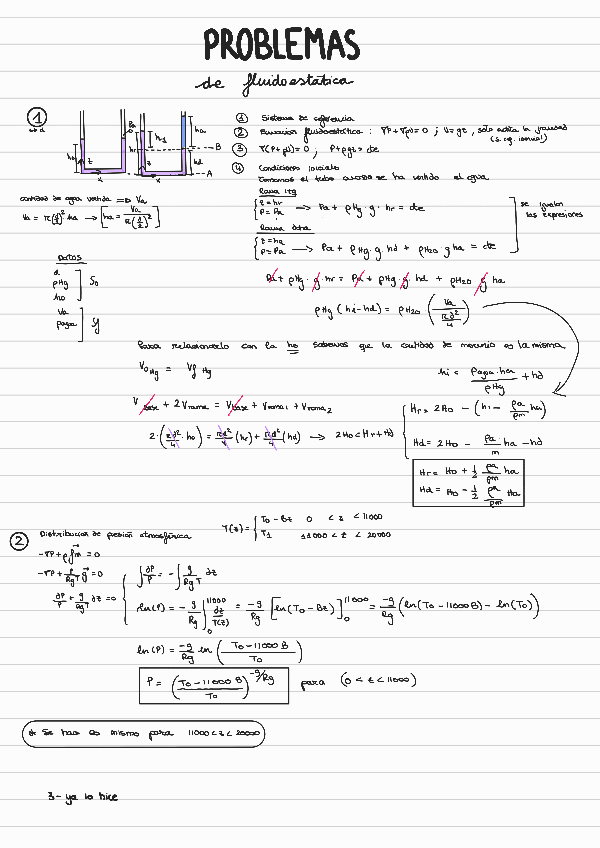 PROBLEMAS
de fluidoestática
1
① Sistema de referencia
② Ecuación fluidoestática : ∇P + ρ∇U = 0 ; U = gz , solo actúa la gravedad
③ ∇(P + ρU) = 0 ; P + ρgz = cte
④ Condiciones iniciales
Tomamos el tubo cuando se ha vertido el agua
Rama izq
z = hr
P = Pa → Pa + ρHg · g · hr = cte
Rama dcha
z = ha
P = Pa → Pa + ρHg · g · hd + ρH2O · g ha = cte
se igualan
las expresiones
ha
Pa
h1
hr
B
ho
z
hd
A
x
cantidad de agua vertida ⇒ Va
Va = π(d/2)² · ha → [ha = Va / π(d/2)²]
DATOS
d
ρHg
ho
Va
ρagua
Pa + ρHg · g · hr = Pa + ρHg · g hd + ρH2O g ha
ρHg (hi - hd) = ρH2O (Va / (πd²/4))
Para relacionarlo con la ho sabemos que la cantidad de mercurio es la misma
V0Hg = VfHg
hi = ρagua · ha / ρHg + hd
V base + 2 Vrama = Vbase + Vrama1 + Vrama2
2 · (πd²/4 · ho) = πd²/4 (hr) + πd²/4 (hd) → 2Ho = Hr + Hd
Hr = 2Ho - (hi - ρa/ρm ha)
Hd = 2Ho - ρa/m · ha - hd
Hr = Ho + 1/2 ρa/ρm ha
Hd = Ho - 1/2 ρa/ρm Ha
② Distribución de presión atmosférica
T(z) = { To - Bz 0 < z < 11000
T1 11000 < z < 20000
-∇P + ρ fm = 0
-∇P + P/RgT g = 0
∂P/P + g/RgT ∂z = 0
∫ ∂P/P = -∫ g/RgT ∂z
ln(P) = -g/Rg ∫₀¹¹⁰⁰⁰ dz/T(z) = -g/Rg [ln(To - Bz)]₀¹¹⁰⁰⁰ = -g/Rg (ln(To - 11000B) - ln(To))
ln(P) = -g/Rg ln (To - 11000B / To)
P = (To - 11000B / To)^-g/Rg para (0 < z < 11000)
* Se hace lo mismo para 11000 < z < 20000
3 - ya lo hice